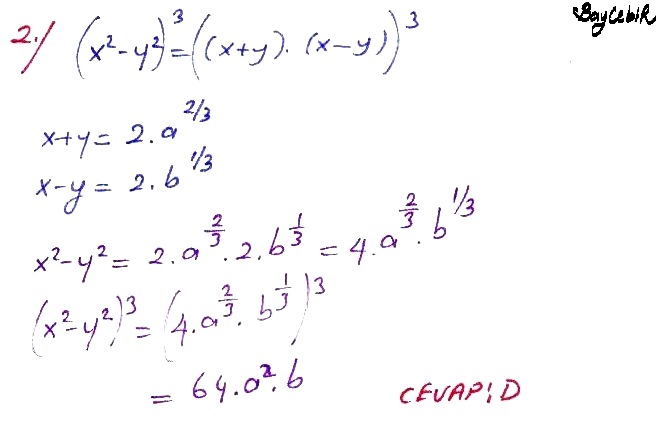 BaycebiR
2./ (x²-y²)³=((x+y).(x-y))³
x+y= 2.a^2/3
x-y= 2.b^1/3
x²-y²= 2.a^2/3.2.b^1/3 = 4.a^2/3.b^1/3
(x²-y²)³=(4.a^2/3.b^1/3)³
= 64.a².b
CEVAP:D